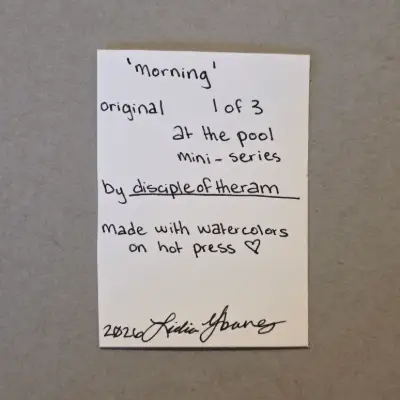 'morning'
original 1 of 3
at the pool
mini-series
by discipleoftheram
made with watercolors
on hot press ♡
2026 Lidia Ybanez